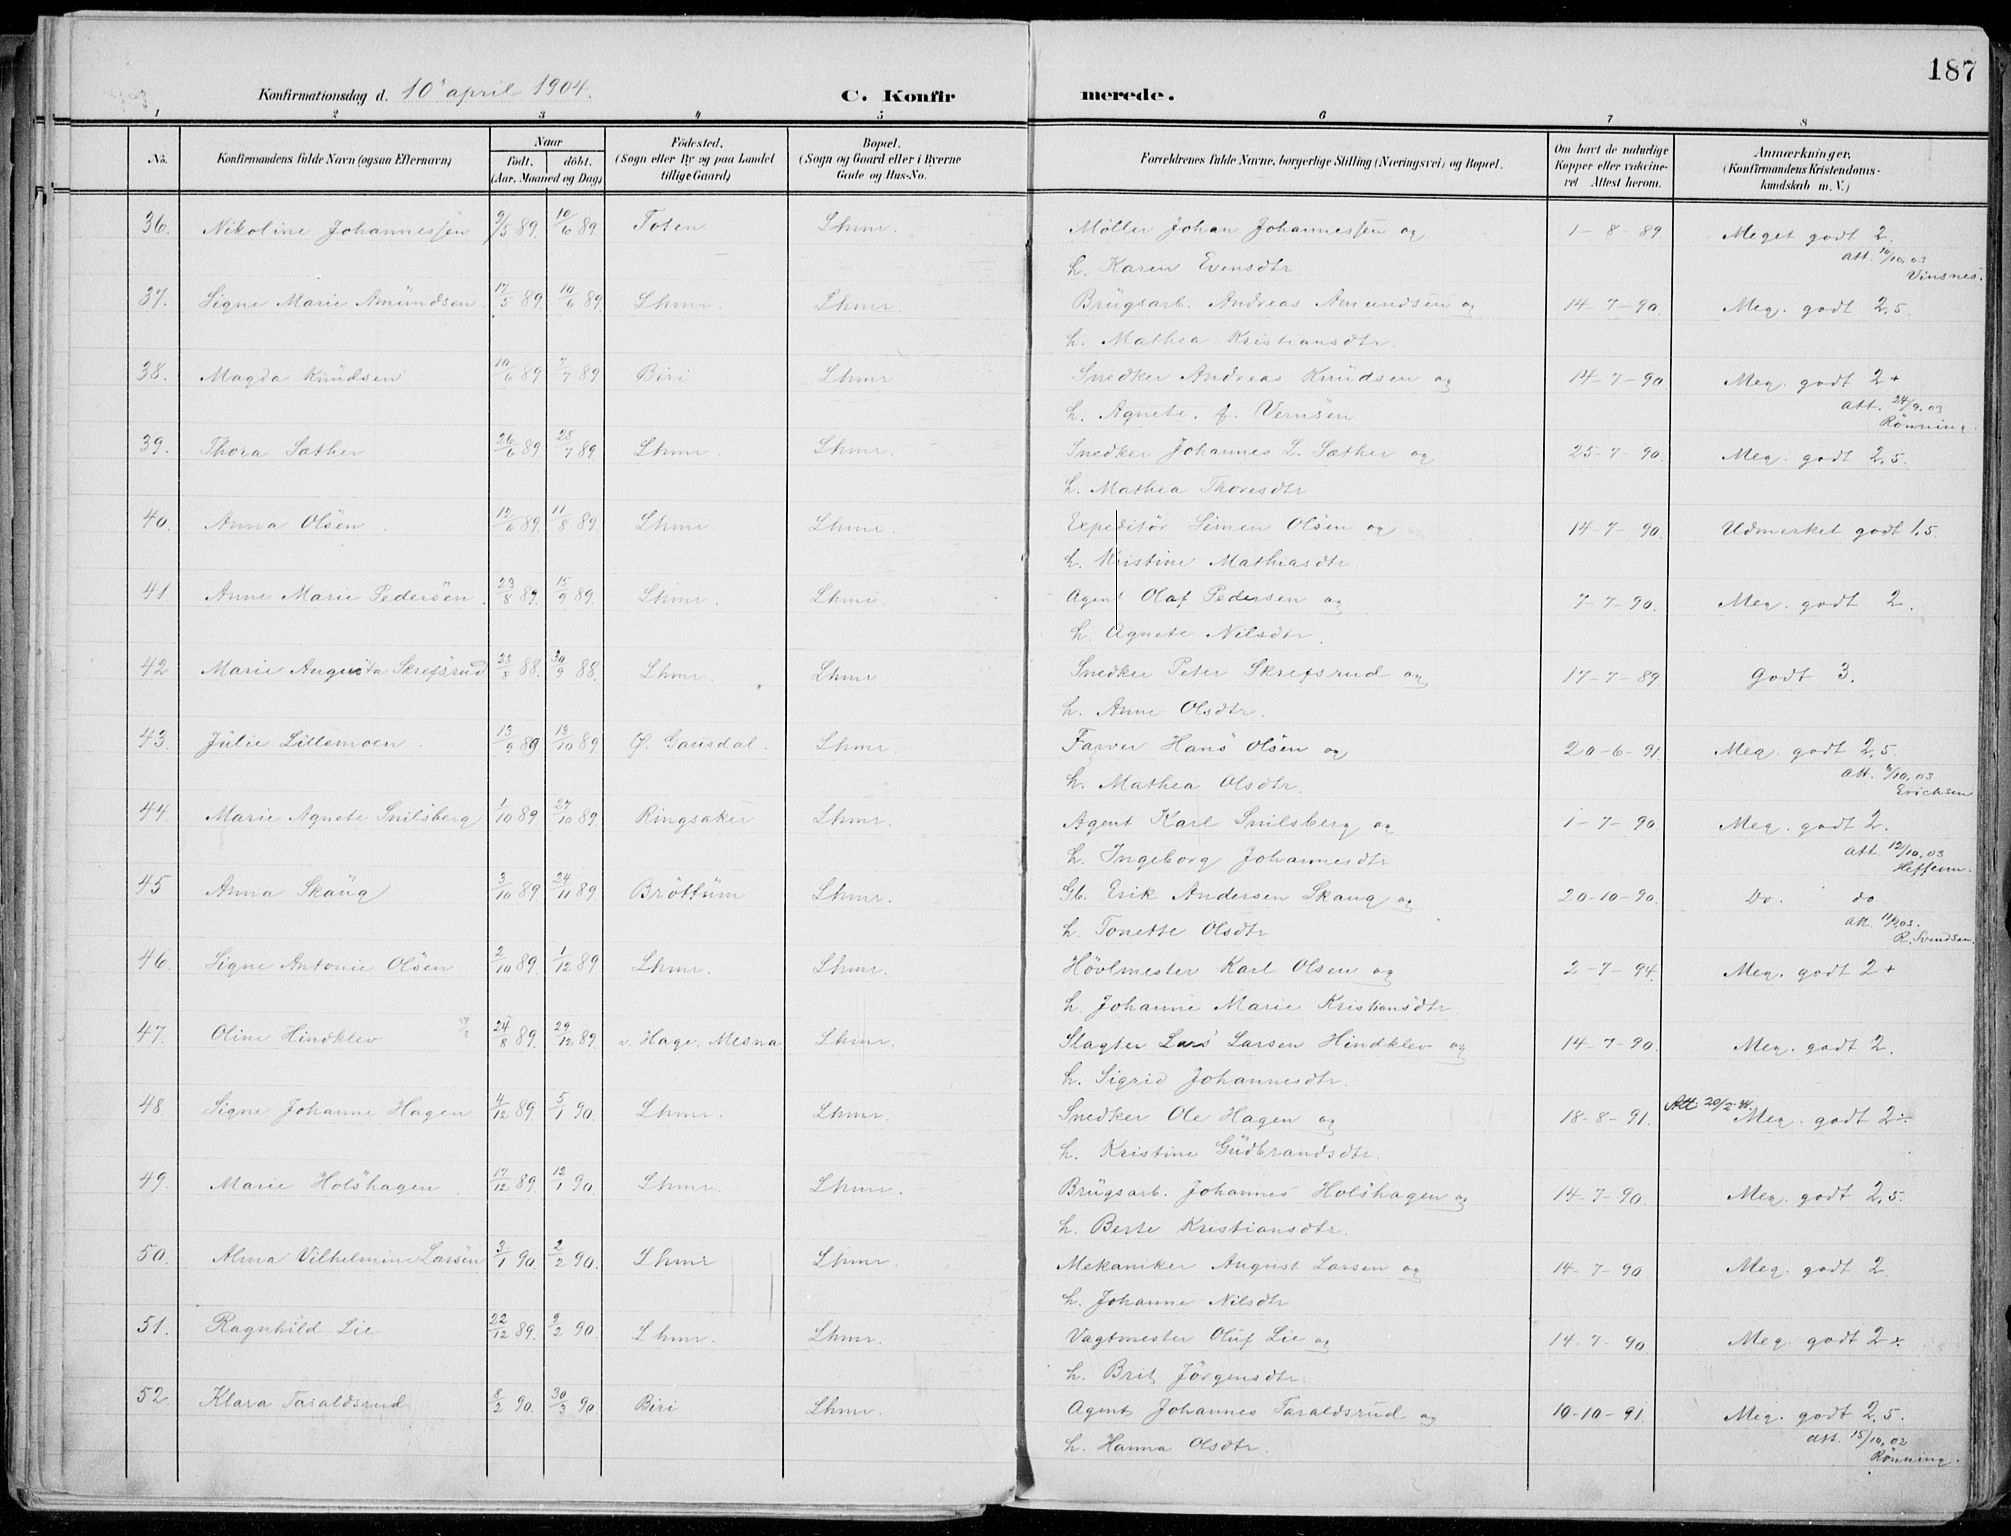 187
Konfirmationsdag d. 10 april 1904. C. Konfirmerede.
1 2 3 4 5 6 7 8
No. Konfirmandens fulde Navn (ogsaa Efternavn) Naar Födt. döbt. (Aar, Maaned og Dag) Födested. (Sogn eller By og paa Landet tillige Gaard) Bopæl. (Sogn og Gaard eller i Byerne Gade og Hus-No. Forældrenes fulde Navne, borgerlige Stilling (Næringsvei) og Bopæl. Om havt de naturlige Kopper eller vakcineret Attest herom. Anmærkninger, (Konfirmandens Kristendomskundskab m. V.)
36. Nikoline Johannessen 9/5 89. 10/6 89. Toten Lhmr. Møller Johan Johannessen og 1-8-89 Meget godt 2.
h. Karen Evensdtr. att. 10/10,03
Vinsnes.
37. Signe Marie Amundsen 17/5 89 10/6 89. Lhmr. Lhmr. Brugsarb. Andreas Amundsen og 14-7-90. Meg. godt 2,5.
h. Mathea Kristiansdtr.
38. Magda Knudsen 10/6 89 7/7 89 Biri Lhmr Snedker Andreas Knudsen og 14-7-90 Meg. godt 2+
h. Agnete, f. Vernsen att. 24/9,03
Rönning.
39. Thora Sæther 26/6 89 28/7 89 Lhmr. Lhmr. Snedker Johannes L. Sæther og 25-7-90. Meg. godt 2,5.
h. Mathea Thoresdtr.
40. Anna Olsen 12/6 89. 11/8 89. Lhmr. Lhmr. Expeditör Simen Olsen og 14-7-90. Udmerket godt 1,5
h. Kristine Mathiasdtr
41. Anne Marie Pedersen 23/8 89. 15/9 89. Lhmr. Lhmr Agent Olaf Pedersen og 7-7-90. Meg. godt 2.
h. Agnete Nilsdtr.
42 Marie Augusta Skrefsrud 23/8 88 30/9 88. Lhmr. Lhmr Snedker Peter Skrefsrud og 17-7-89. Godt 3.
h. Anne Olsdtr.
43. Julie Lillemoen. 13/9 89 13/10 89. Ø. Gausdal. Lhmr. Farver Hans Olsen og 20-6-91 Meg. godt 2,5.
h. Mathea Olsdtr. att. /10,03
Erichsen
44. Marie Agnete Snilsberg 1/10 89 27/10 89. Ringsaker Lhmr. Agent Karl Snilsberg og 1-7-90 Meg. godt 2.
h. Ingeborg Johannesdtr att. 12/10,03
45 Anna Skaug 3/10 89. 24/11 89. Bröttum Lhmr. Gb. Erik Andersen Skaug og 20-10-90. Do. do
h. Tonette Olsdtr att.
R. Svendsen.
46. Signe Antonie Olsen 2/10 89. 1/12 89. Lhmr. Lhmr. Hövlmester Karl Olsen og 2-7-94. Meg. godt 2+
h. Johanne Marie Kristiansdtr.
47. Oline Hindklev 24/8 89. 29/12 89. v. Hage, Mesna Lhmr. Slagter Lars Larsen Hindklev og 14-7-90. Meg. godt 2.
h. Sigrid Johannesdtr.
48. Signe Johanne Hagen 4/12 89 5/1 90 Lhmr. Lhmr. Snedker Ole Hagen og 18-8-91. Att. 20/2- Meg. godt 2÷
h. Kristine Gudbrandsdtr.
49. Marie Holshagen 17/12 89 12/1 90. Lhmr. Lhmr. Brugsarb. Johannes Holshagen og 14-7-90. Meg. godt 2,5.
h. Berte Kristiansdtr.
50. Alma Vilhelmine Larsen 3/1 90. 2/2 90. Lhmr Lhmr. Mekaniker August Larsen og 14-7-90 Meg. godt 2
h. Johanne Nilsdtr
51. Ragnhild Lie 22/12 89. 9/2 90. Lhmr. Lhmr. Vagtmester Oluf Lie og 14-7-90 Meg. godt 2÷
h. Brit Jörgensdtr.
52. Klara Taraldsrud 8/2 90. 30/3 90 Biri Lhmr. Agent Johannes Taraldsrud og 10-10-91. Meg. godt 2,5.
h. Hanna Olsdtr. att. 15/10,02
Rönning.